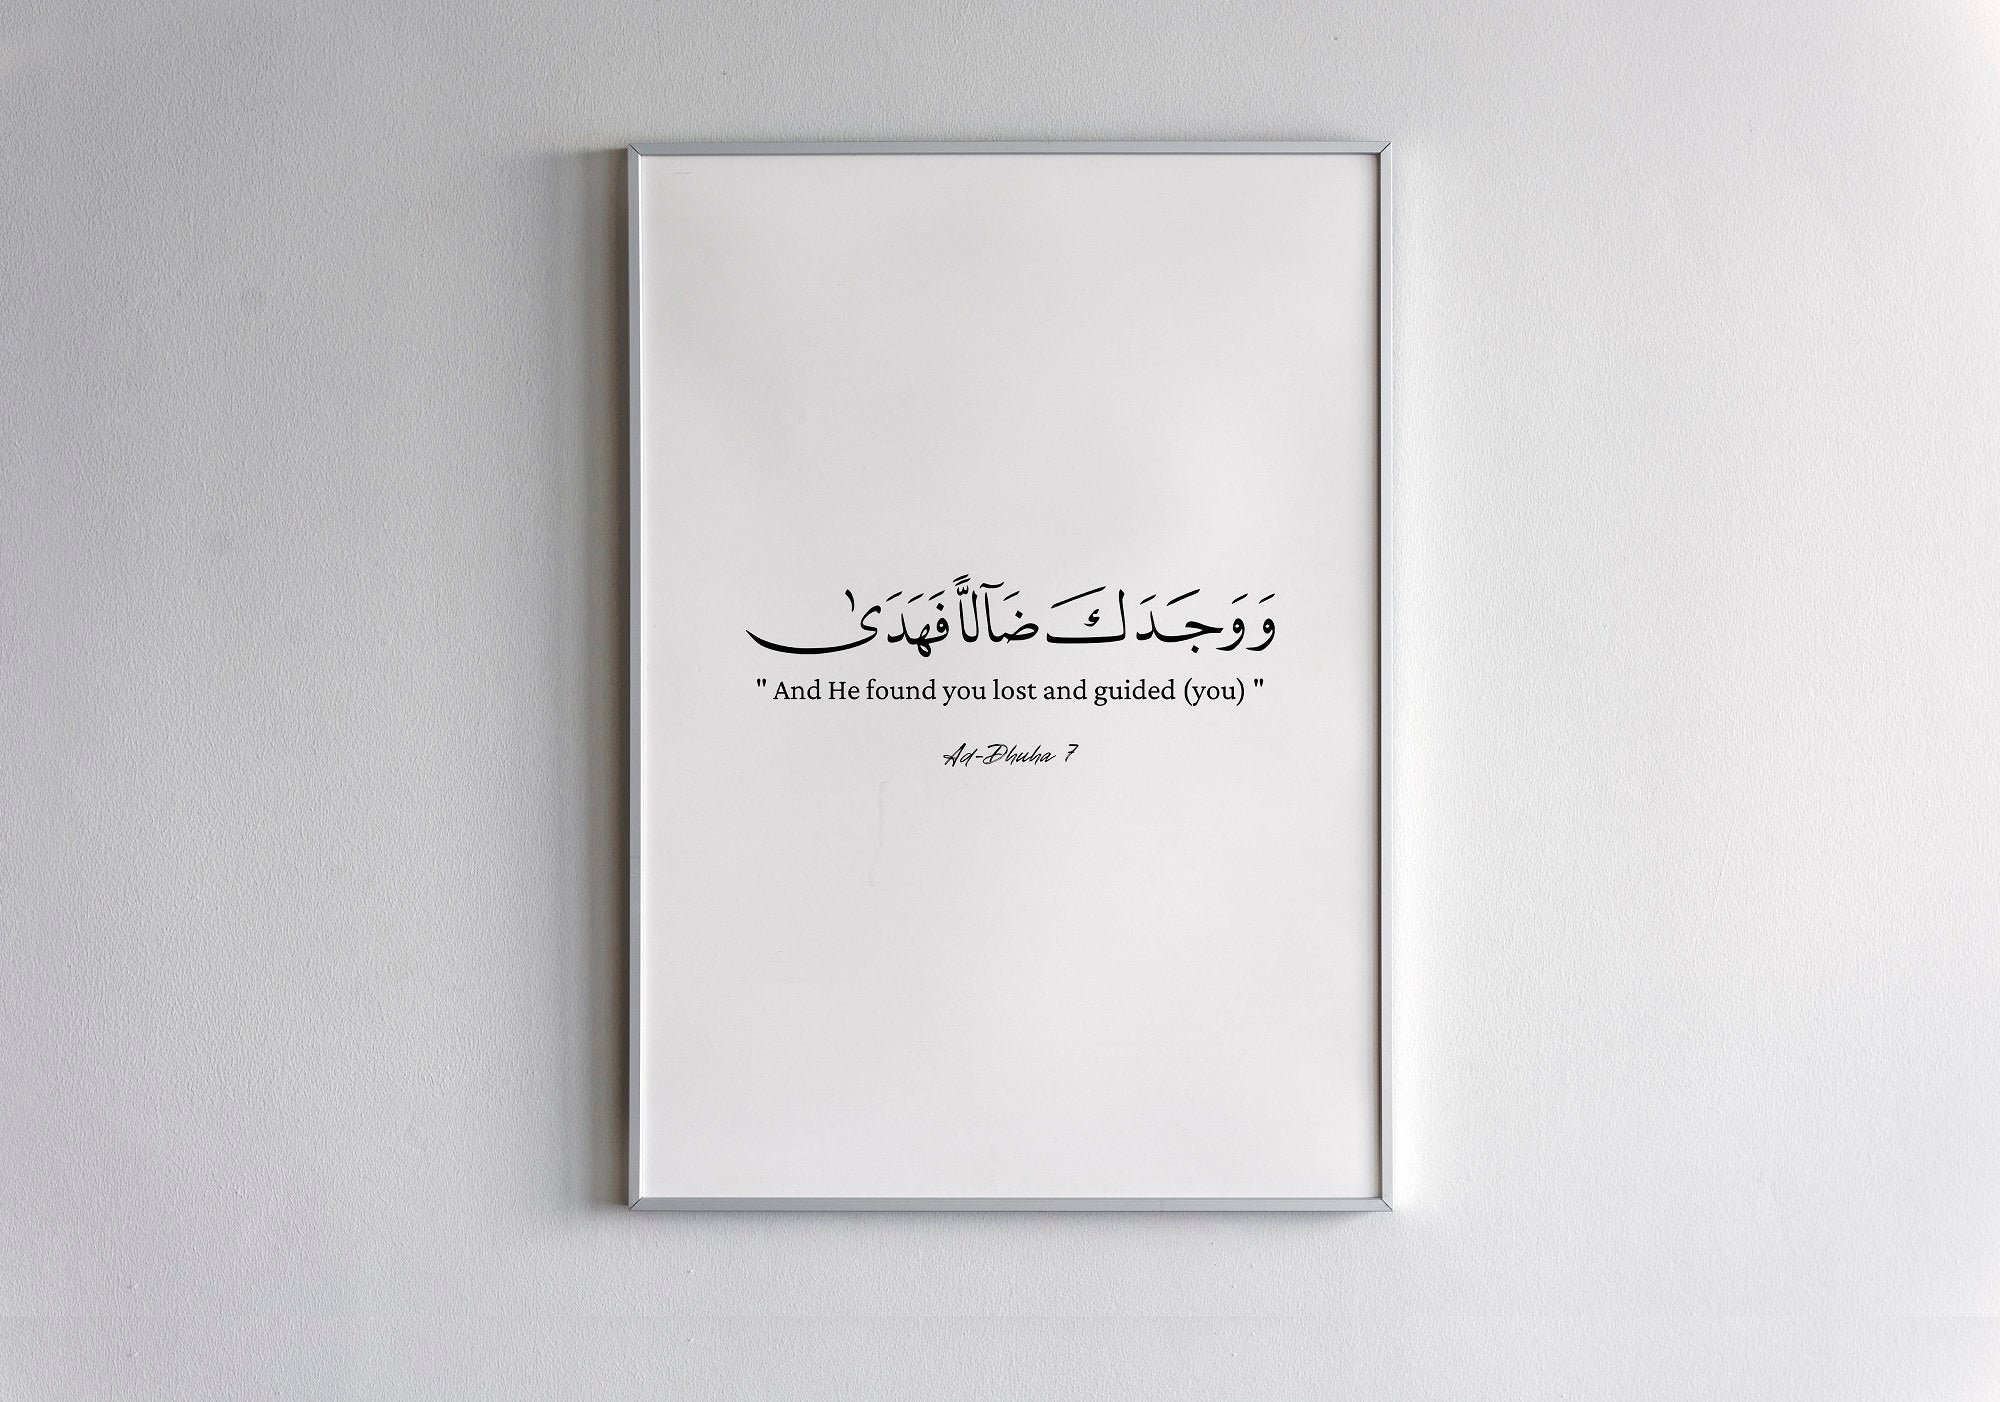 وَوَجَدَكَ ضَآلًّا فَهَدَىٰ
" And He found you lost and guided (you) "
Ad-Dhuha 7